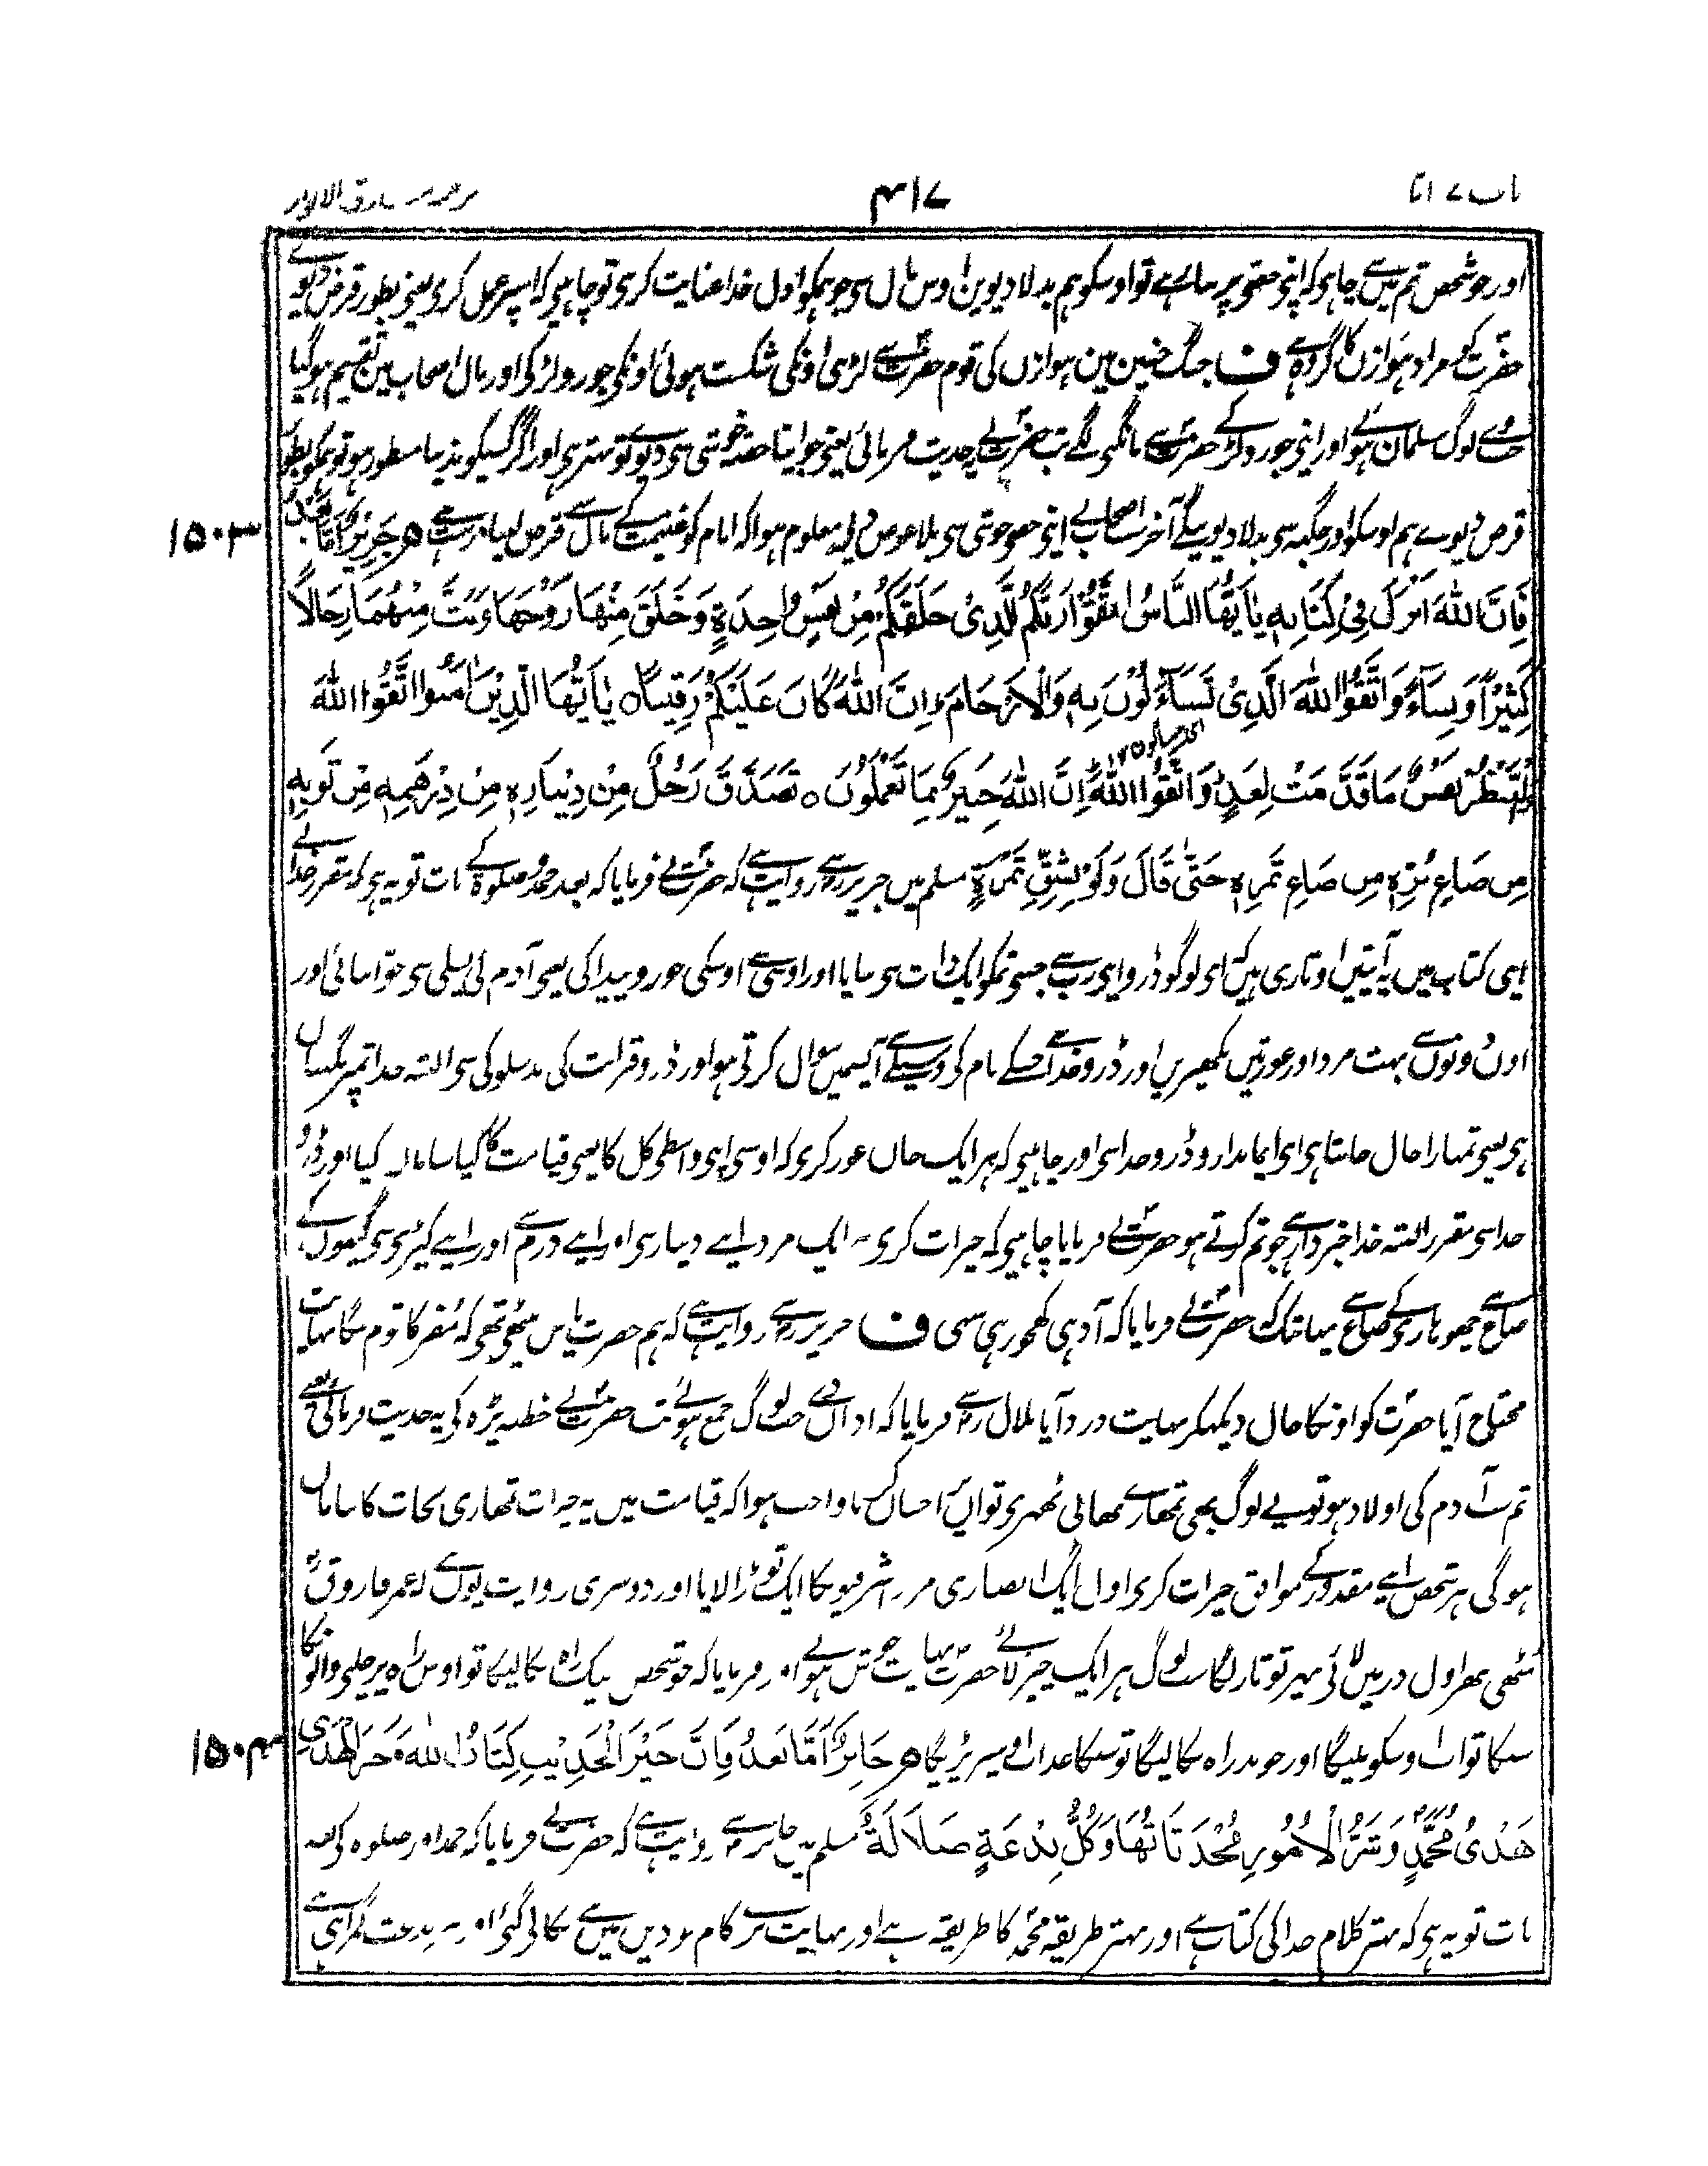 باب ۷ اما
۴۱۷
ترجمہ مشارق الانوار
اور جو شخص تم میں سے چاہی کہ اپنی حصی پر رہے تو اوسکو ہم بدلا دیوین اوس مال سی جو ہمکو اول خدا عنایت کری تو چاہیی کہ اسپر عمل کری یعنی بطور قرض دیوے
حضرت کو مراد ہوازن کا گروہ ہے ف جنگ حنین مین ہوازن کی قوم حضرت سے لڑی اونکی شکست ہوئی اونکی جورو لڑکی اور مال اصحاب مین تقسیم ہوگیا
لوگ مسلمان ہوئے اور اپنی جورو لڑکے حضرت سے مانگنی لگے تب حضرت نے یہ حدیث فرمائی یعنی جو اپنا حصہ خوشی سی دیوے تو بہتر ہی اور اگر کسیکو یہ نہ منظور ہو تو ہمکو بطور
قرض دیوے ہم اوسکو اور جگہہ سی بدلا دیوینگے آخر اصحاب نے اپنی خوشی سی بلا عوض دیا معلوم ہوا کہ امام کو غنیمت کے مال سے قرض لینا درست ہے ۵ جَرِيْرٌ اَمَّا بَعْدُ
۱۵۰۳
فَاِنَّ اللهَ اَنْزَلَ فِيْ كِتَابِهٖ يَا اَيُّهَا النَّاسُ اتَّقُوْا رَبَّكُمُ الَّذِيْ خَلَقَكُمْ مِنْ نَفْسٍ وَاحِدَةٍ وَخَلَقَ مِنْهَا زَوْجَهَا وَبَثَّ مِنْهُمَا رِجَالًا
كَثِيْرًا وَنِسَاءً وَاتَّقُوا اللهَ الَّذِيْ تَسَاءَلُوْنَ بِهٖ وَالْاَرْحَامَ اِنَّ اللهَ كَانَ عَلَيْكُمْ رَقِيْبًا ۵ يٰاَيُّهَا الَّذِيْنَ اٰمَنُوا اتَّقُوا اللهَ
وَلْتَنْظُرْ نَفْسٌ مَا قَدَّمَتْ لِغَدٍ وَاتَّقُوا اللهَ اِنَّ اللهَ خَبِيْرٌ بِمَا تَعْمَلُوْنَ ۵ تَصَدَّقَ رَجُلٌ مِنْ دِيْنَارِهٖ مِنْ دِرْهَمِهٖ مِنْ ثَوْبِهٖ
مِنْ صَاعِ بُرِّهٖ مِنْ صَاعِ تَمْرِهٖ حَتّٰى قَالَ وَلَوْ بِشِقِّ تَمْرَةٍ مسلم میں جریر رض سے روایت ہے کہ حضرت نے فرمایا کہ بعد حمد و صلوۃ کے بات تو یہ ہی کہ مقرر خدا نے
اپنی کتاب میں یہ آیتیں اوتاری ہیں کہ ای لوگو ڈرو اپنی رب سے جسنی تمکو ایک ذات سی بنایا اور اوسی سے اوسکی جورو پیدا کی یعنی آدم کی پسلی سی حوا بنائی اور
اون دونوں سے بہت مرد اور عورتیں بکھیریں اور ڈرو خدا سے جسکے نام کی وسیلے آپسمیں سوال کرتی ہو اور ڈرو قرابت کی بدسلوکی سی البتہ خدا تمپر نگہبان
ہی یعنی تمہارا حال جانتا ہی ای ایماندارو ڈرو خدا سی اور چاہیی کہ ہر ایک جان غور کری کہ اوسی اپنی واسطی کل کا یعنی قیامت کا کیا سامان کیا اور ڈرو
خدا سی مقرر البتہ خدا خبردار ہے جو تم کرتے ہو حضرت نے فرمایا چاہیی کہ خیرات کری ایک مرد اپنے دینار سی اور اپنے درم سے اور اپنے کپڑی سی گیہوں کے
صاع سے چھوہاری کے صاع سے یہانتک کہ حضرت نے فرمایا کہ آدہی کھجور ہی سی ف جریر رض سے روایت ہے کہ ہم حضرت پاس بیٹھی تھی کہ مضر کا قوم ننگا نہایت
محتاج آیا حضرت کو اونکا حال دیکھکر نہایت درد آیا بلال رض سے فرمایا کہ اذان دے جب لوگ جمع ہوئے تب حضرت نے خطبہ پڑہ کی یہ حدیث فرمائی یعنی
تم سب آدم کی اولاد ہو تو یے لوگ بھی تمھارے بھائی ٹھہری تو ان پر احسان کرنا واجب ہوا کہ قیامت میں یہ خیرات تمھاری نجات کا سامان
ہوگی ہر شخص اپنے مقدور کے موافق خیرات کری اول ایک انصاری مرد اشرفیونکا ایک توڑا لایا اور دوسری روایت یوں ہے کہ عمر فاروق رض
مٹھی بھر اول درمیں لائی پھر تو تار لگا سب لوگ ہر ایک چیز لائے حضرت نہایت خوش ہوئے اور فرمایا کہ جو شخص نیک راہ نکالیگا تو اوس راہ پر چلنی والونکا
سبکا ثواب اوسکو ملیگا اور جو بد راہ نکالیگا تو سبکا عذاب اوسپر پڑیگا ۵ جَابِرٌ اَمَّا بَعْدُ فَاِنَّ خَيْرَ الْحَدِيْثِ كِتَابُ اللهِ وَخَيْرَ الْهَدْيِ
۱۵۰۴
هَدْيُ مُحَمَّدٍ وَشَرُّ الْاُمُوْرِ مُحْدَثَاتُهَا وَكُلُّ بِدْعَةٍ ضَلَالَةٌ مسلم میں جابر رض سے روایت ہے کہ حضرت نے فرمایا کہ حمد اور صلوۃ کی بعد
بات تو یہ ہی کہ بہتر کلام خدا کی کتاب ہے اور بہتر طریقہ محمد کا طریقہ ہے اور نہایت برے کام دین میں سے نکالی گئی اور ہر بدعت گمراہی ہے